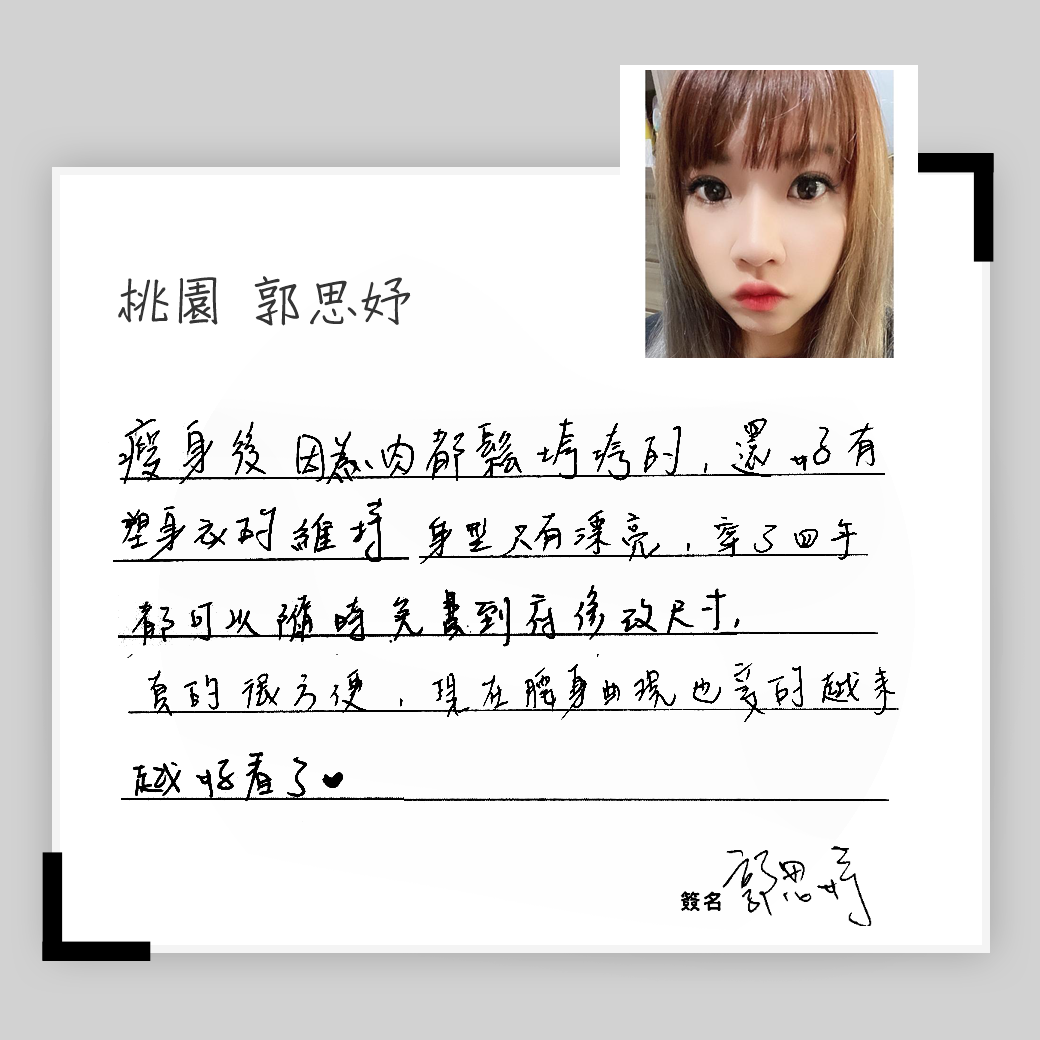 桃園 郭思妤
瘦身後因為肉都鬆垮垮的，還好有
塑身衣的維持 身型只有漂亮，穿了四年
都可以隨時免費到府修改尺寸，
真的很方便，現在腰身曲現也變的越來
越好看了♥
簽名 郭思妤